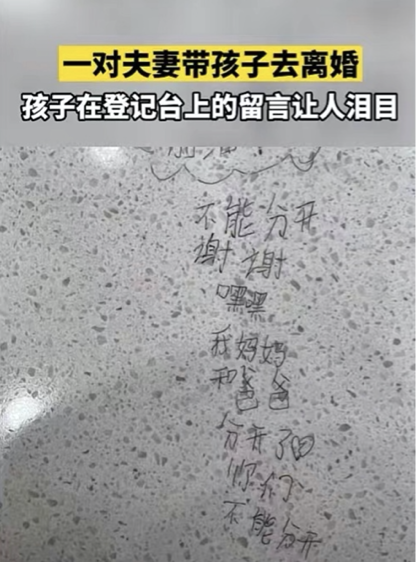 一对夫妻带孩子去离婚
孩子在登记台上的留言让人泪目
不能分开
谢谢
嘿嘿
我妈妈
和爸爸
分开了
你们
不能分开